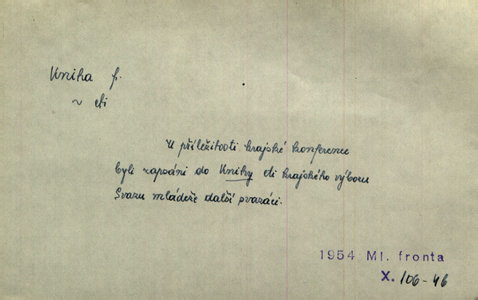 Kniha p.
~ cti
U příležitosti krajské konference
byli zapsáni do Knihy cti krajského výboru
Svazu mládeže další svazáci.
1954 Ml. fronta
X. 106-46